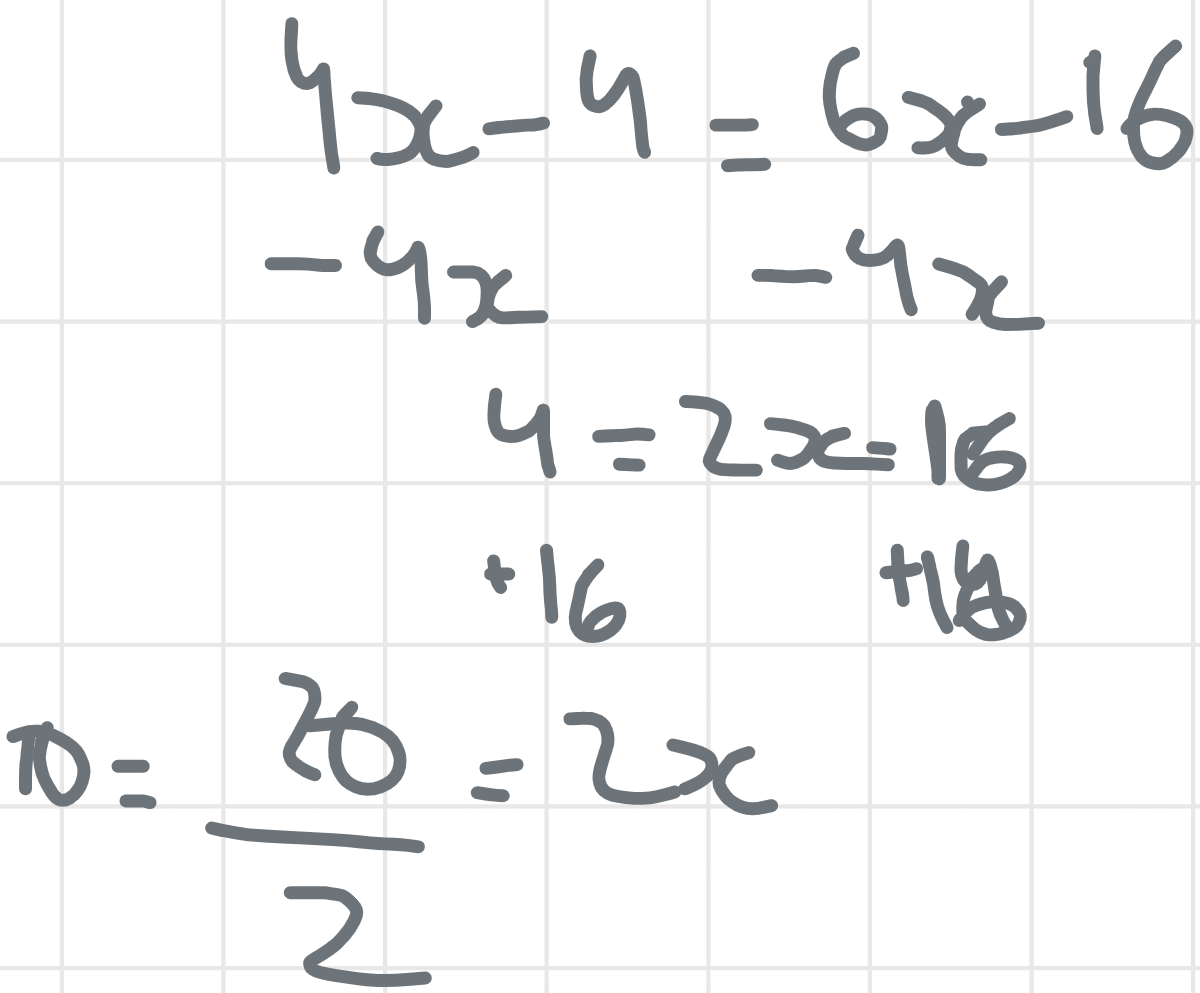 4x - 4 = 6x - 16
- 4x - 4x
4 = 2x = 16
+16 +16
10 = 20/2 = 2x